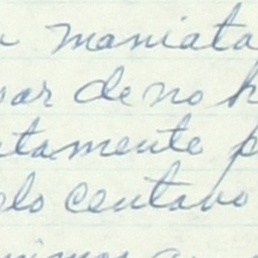 maniata
sar de no h
tamente p
lo centavo